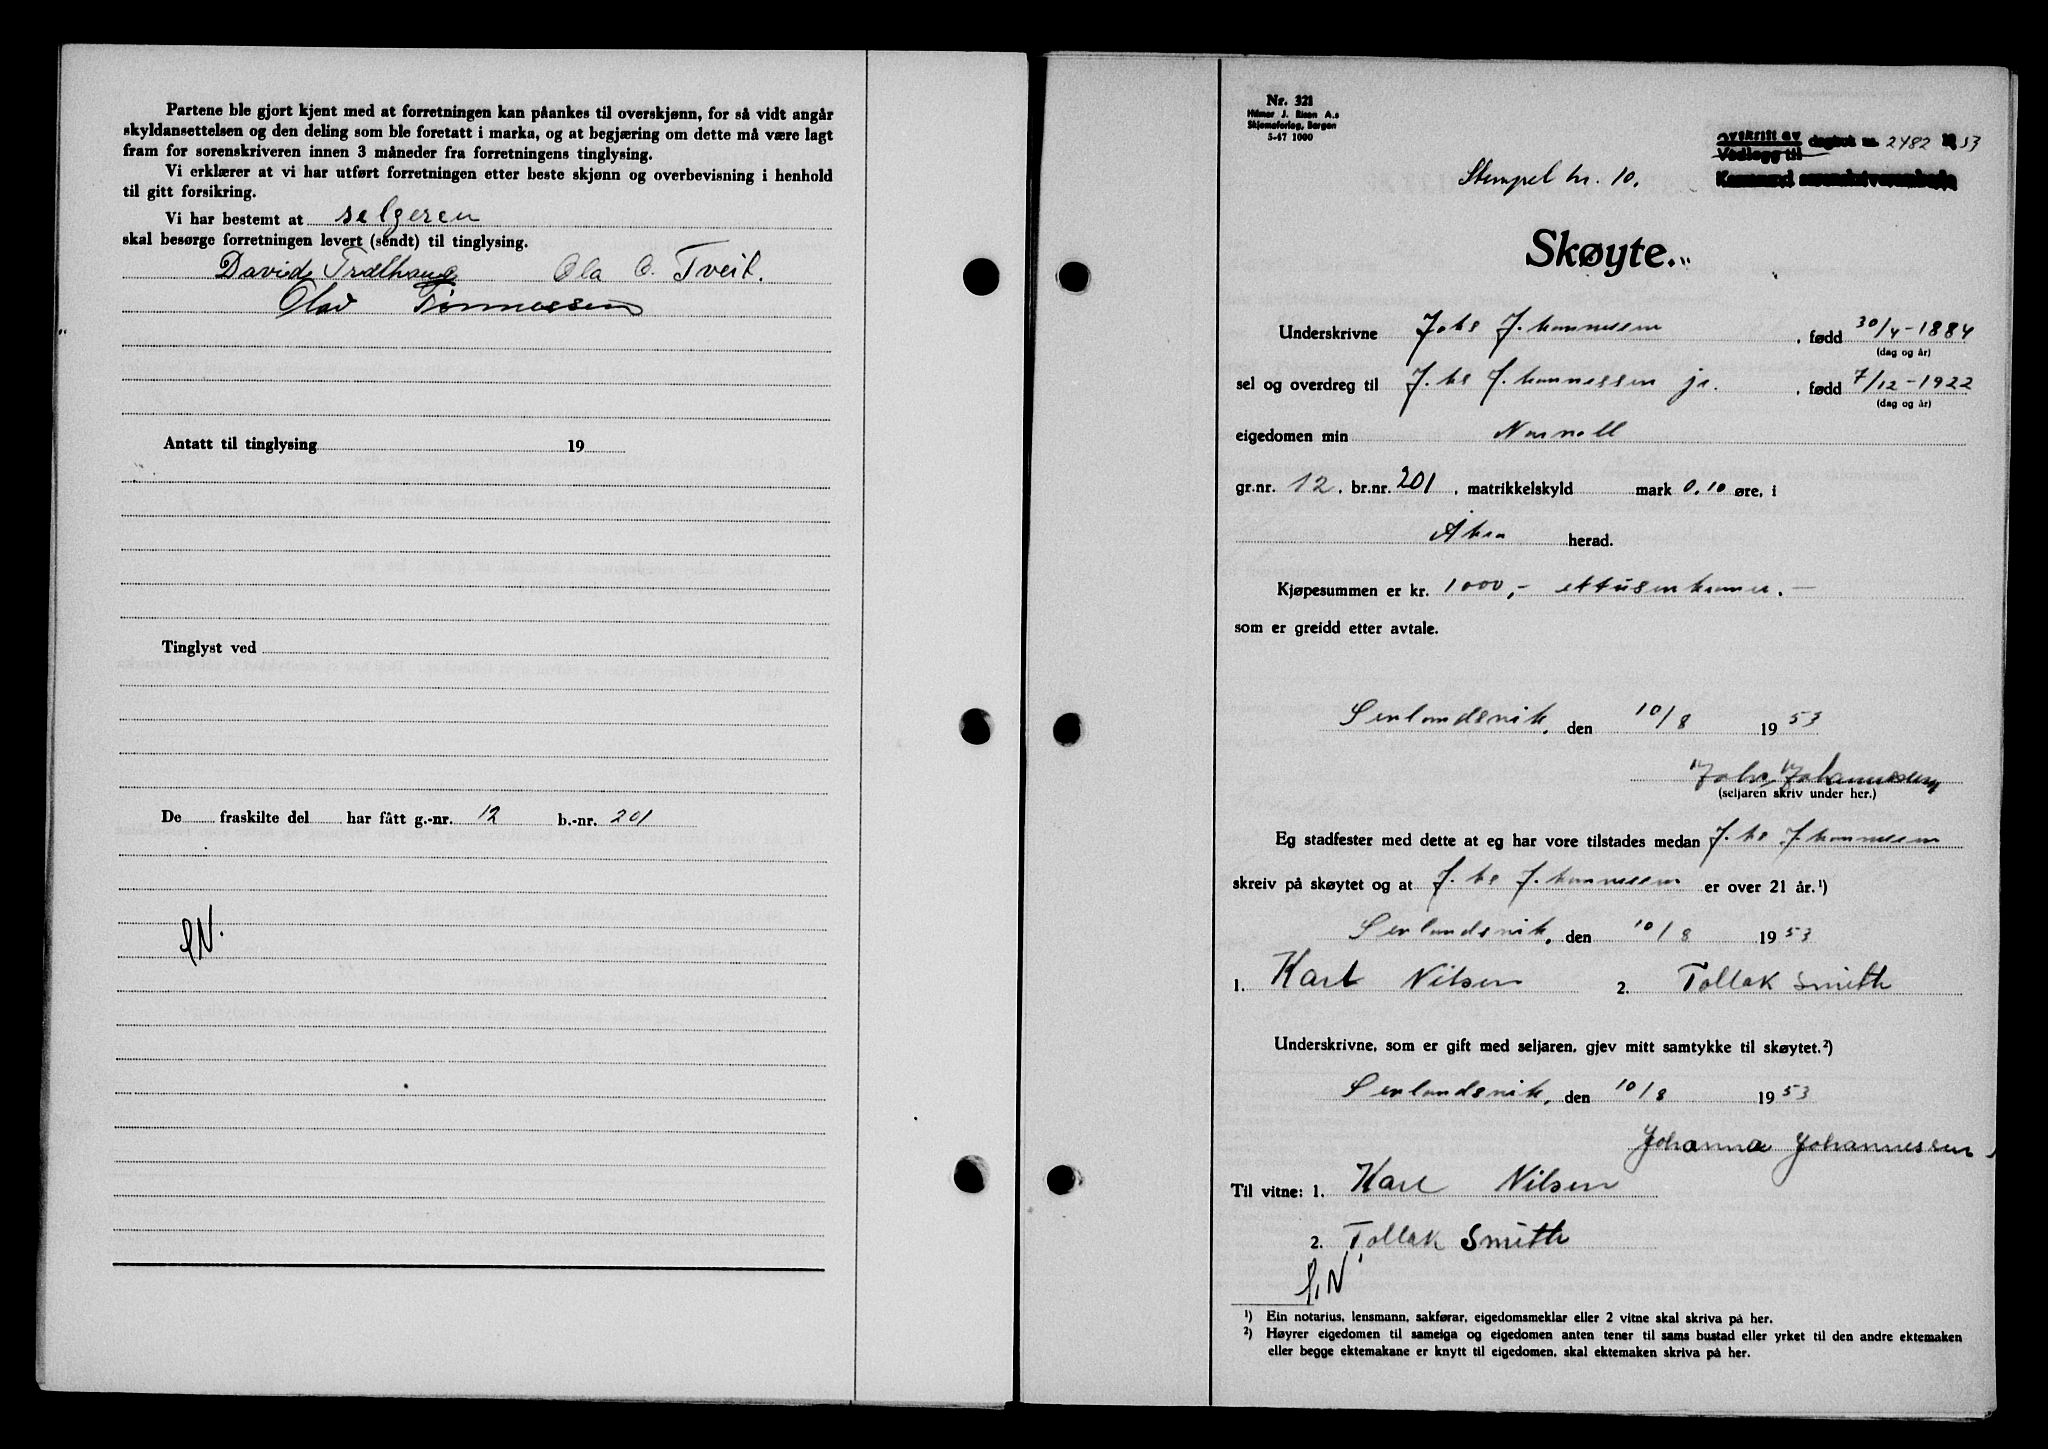 Partene ble gjort kjent med at forretningen kan påankes til overskjønn, for så vidt angår
skyldansettelsen og den deling som ble foretatt i marka, og at begjæring om dette må være lagt
fram for sorenskriveren innen 3 måneder fra forretningens tinglysing.
Vi erklærer at vi har utført forretningen etter beste skjønn og overbevisning i henhold
til gitt forsikring.
Vi har bestemt at selgeren
skal besørge forretningen levert (sendt) til tinglysing.
Davids Trælhaug Ola O. Tveit.
Olav Tönnessen
Antatt til tinglysing 19
Tinglyst ved
De fraskilte del har fått g.-nr. 12 b.-nr. 201
Nr. 321
Hilmar J. Riisen A.s
Skjemaforlag, Bergen
5-47 1000
Avskrift av
Vedlegg til dagbok nr. 2482 19 53
Karmsund sorenskriverembede
Stempel kr. 10.
Skøyte.
Underskrivne Johs Johannessen, fødd 30/4-1884
(dag og år)
sel og overdreg til Johs Johannessen jr., fødd 7/12-1922
(dag og år)
eigedomen min
gr.nr. 12, br.nr. 201, matrikkelskyld mark 0.10 øre, i
Åkra herad.
Kjøpesummen er kr. 1000,- ettusenkroner.-
som er greidd etter avtale.
Sevlandsvik, den 10/8 1953
Johs Johannessen
(seljaren skriv under her.)
Eg stadfester med dette at eg har vore tilstades medan Johs Johannessen
skreiv på skøytet og at Johs Johannessen er over 21 år.¹)
Sevlandsvik, den 10/8 1953
1. Karl Nilsen 2. Tollak Smith
Underskrivne, som er gift med seljaren, gjev mitt samtykke til skøytet.²)
Sevlandsvik, den 10/8 1953
Johanna Johannessen
Til vitne: 1. Karl Nilsen
2. Tollak Smith
¹) Ein notarius, lensmann, sakførar, eigedomsmeklar eller 2 vitne skal skriva på her.
²) Høyrer eigedomen til sameiga og eigedomen anten tener til sams bustad eller yrket til den andre ektemaken
eller begge ektemakane er knytt til eigedomen, skal ektemaken skriva på her.